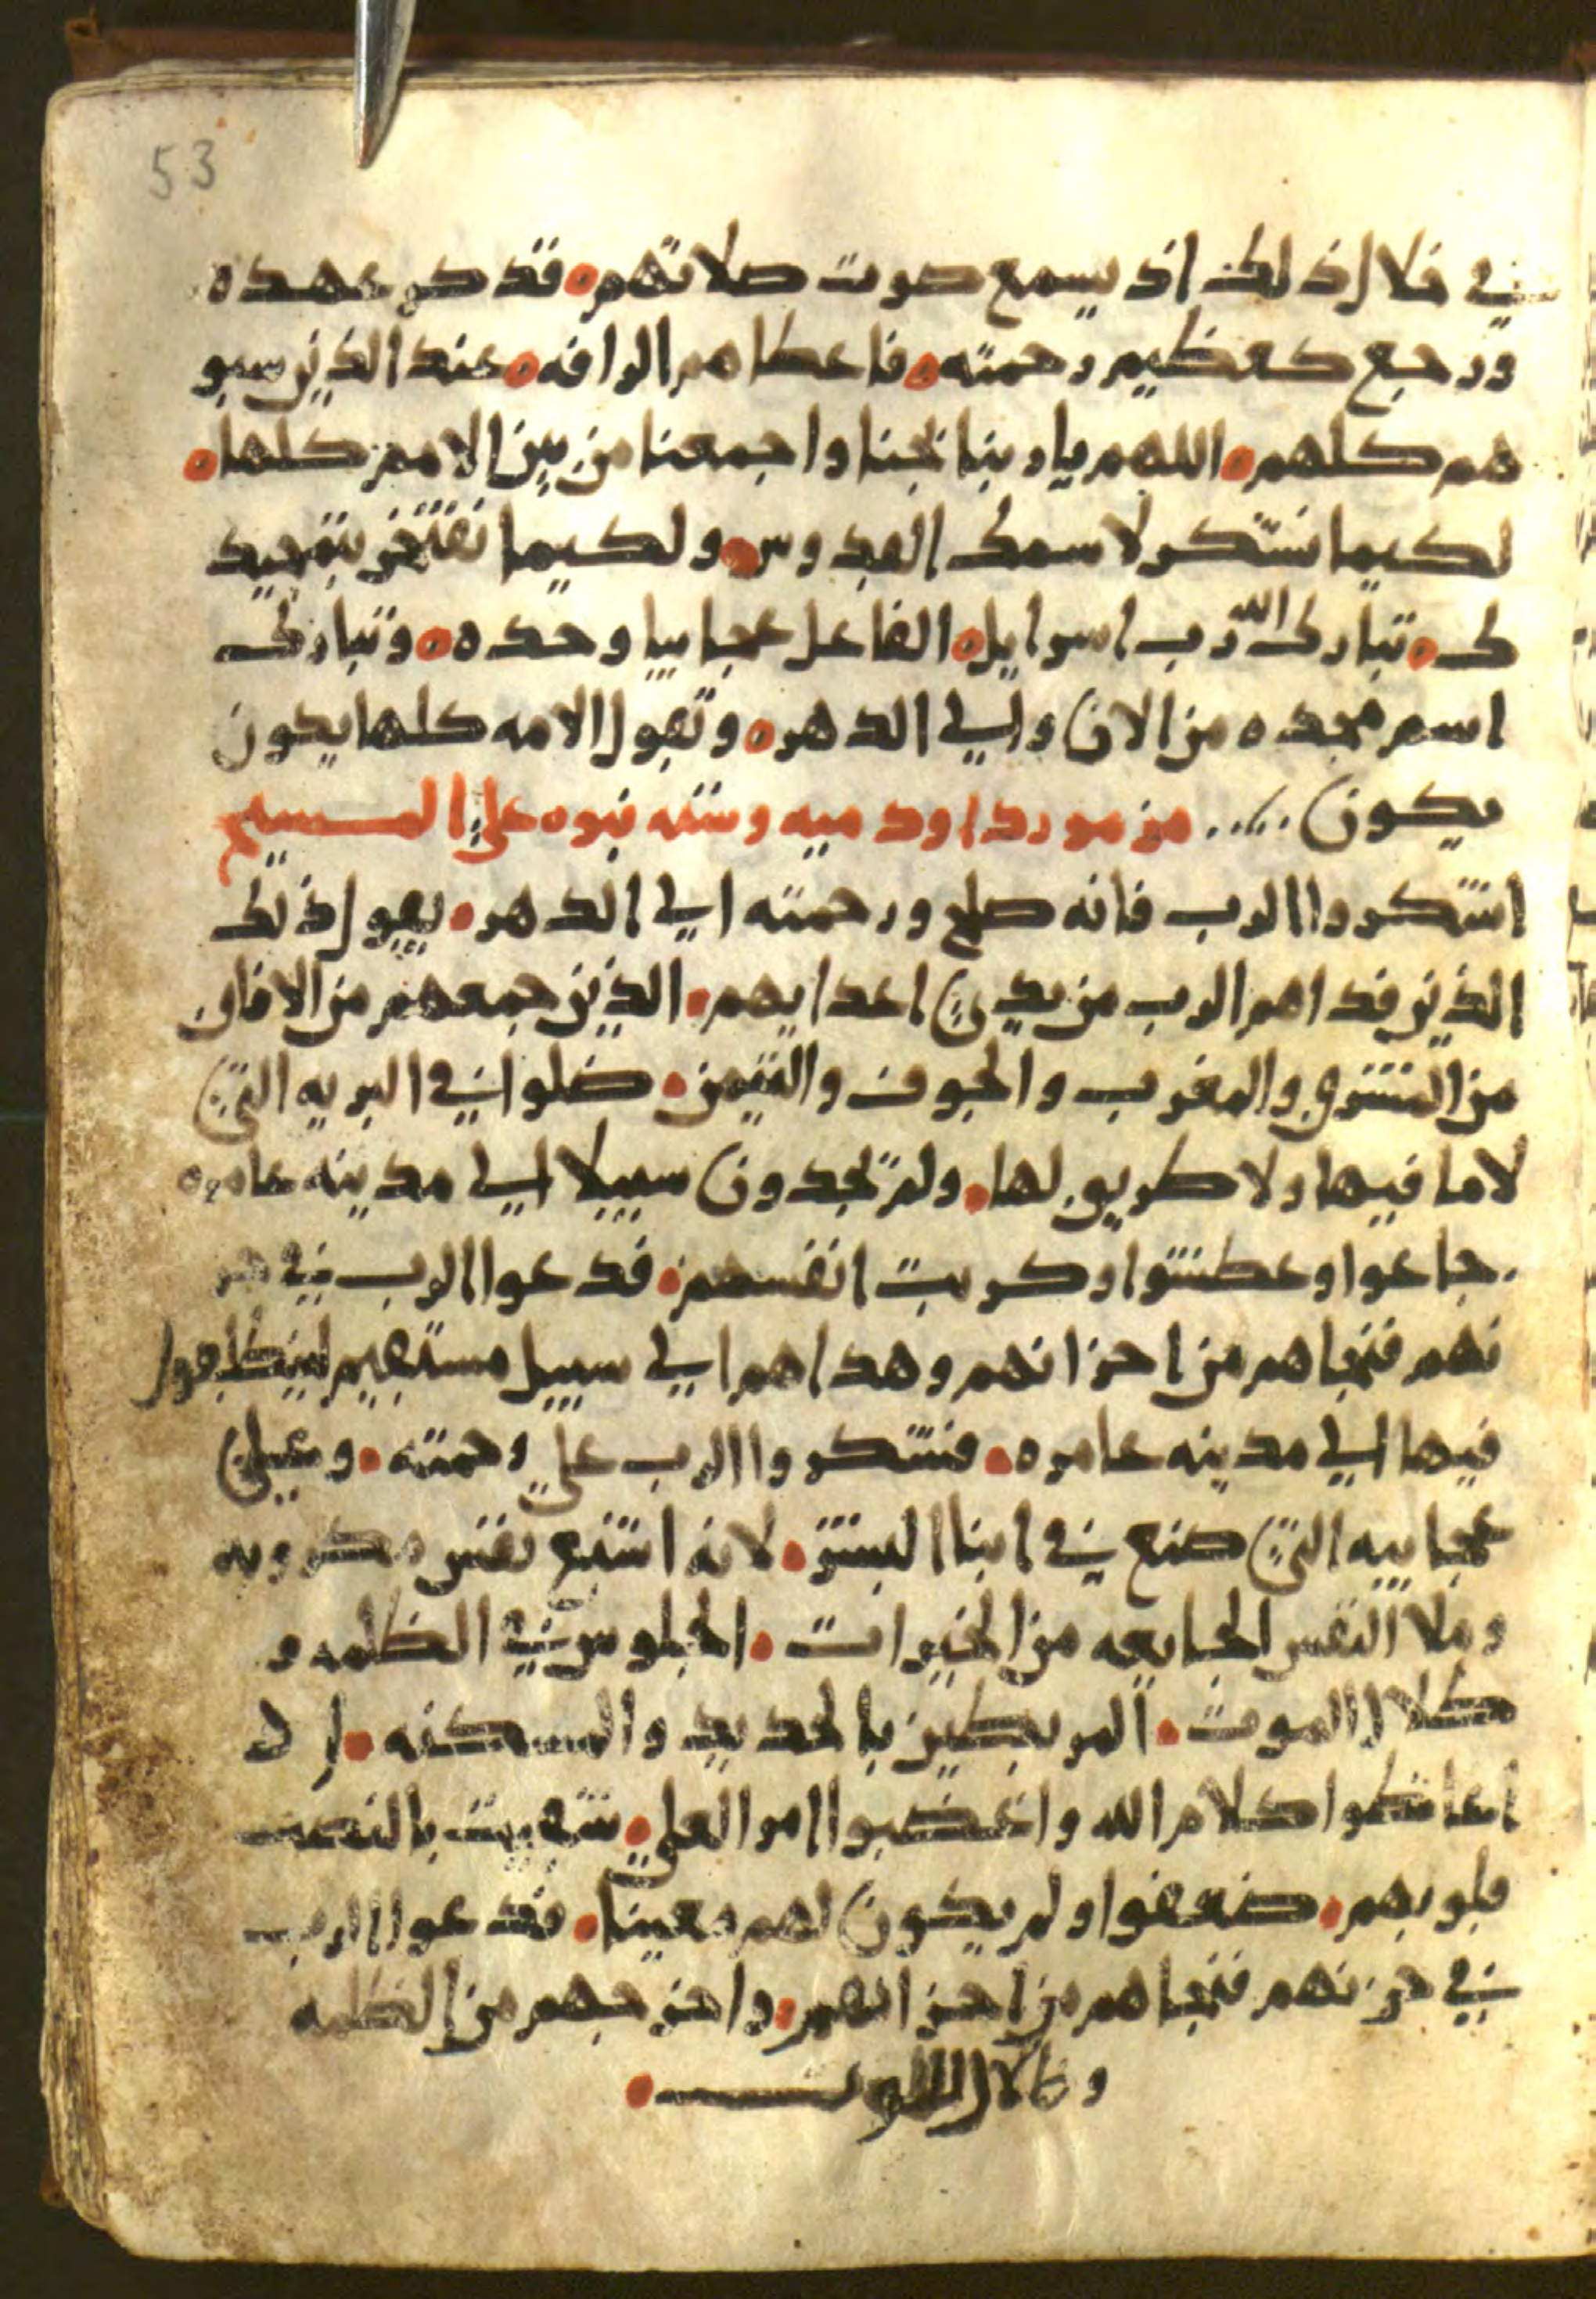 53
في خلال ذلك اذ يسمع صوت صلاتهم ٠ فذكر عهده
ورجع كعظيم رحمته ٠ فاعطاهم الرافه ٠ عند الذين سبو
هم كلهم ٠ اللهم يا ربنا نجنا واجمعنا من بين الامم كلها ٠
لكيما نشكر لاسمك القدوس ٠ ولكيما نفتخر بتمجيد
ك ٠ تبارك الله رب اسرايل ٠ الفاعل عجايبا وحده ٠ وتبارك
اسم مجده من الان والي الدهر ٠ وتقول الامه كلها يكون
يكون ..... مزمور داود ميه وسته نبوه علي المسيح
اشكروا الرب فانه صلح ورحمته الي الدهر ٠ يقول ذلك
الذين فداهم الرب من يدي اعدايهم ٠ الذين جمعهم من الافاق
من المشرق والمغرب والجوف والتيمن ٠ ضلوا في البريه التي
لا ما فيها ولا طريق لها ٠ ولم تجدون سبيلا الي مدينه عامره
جاعوا وعطشوا وكربت انفسهم ٠ فدعوا الرب في حز
نهم فنجاهم من احزانهم وهداهم الي سبيل مستقيم
فيها الي مدينه عامره ٠ فشكروا الرب علي رحمته ٠ وعلي
عجايبه التي صنع في ابنا البشر ٠ لانه اشبع نفس مكروبه
وملا النفس الجايعه من الخيرات ٠ الجلوس في الظلمه و
ظلال الموت ٠ المربطين بالحديد والمسكنه ٠
كلام الله واغضبوا امر العلي ٠ بالنصب
قلوبهم ٠ ضعفوا ولم يكون لهم معينا ٠ فدعوا الرب
في حزنهم فنجاهم من احزانهم ٠ واخرجهم من الظلمه
وظلال الموت ٠